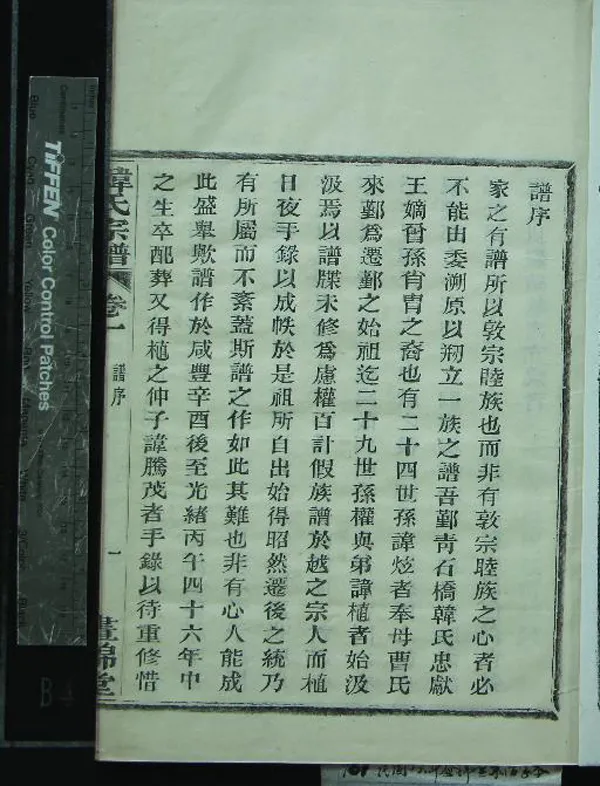 譜序
家之有譜所以敦宗睦族也而非有敦宗睦族之心者必
不能由委溯原以刱立一族之譜吾鄞青石橋韓氏忠獻
王嫡曾孫肖胄之裔也有二十四世孫諱炫者奉母曹氏
來鄞爲遷鄞之始祖迄二十九世孫權與弟諱植者始汲
汲焉以譜牒未修爲慮權百計假族譜於越之宗人而植
日夜手錄以成帙於是祖所自出始得昭然遷後之統乃
有所屬而不紊蓋斯譜之作如此其難也非有心人能成
此盛舉歟譜作於咸豐辛酉後至光緒丙午四十六年中
之生卒配葬又得植之仲子諱騰茂者手錄以待重修惜
韓氏宗譜
卷一
譜序
一
晝錦堂
TIFFEN Color Control Patches
B 4